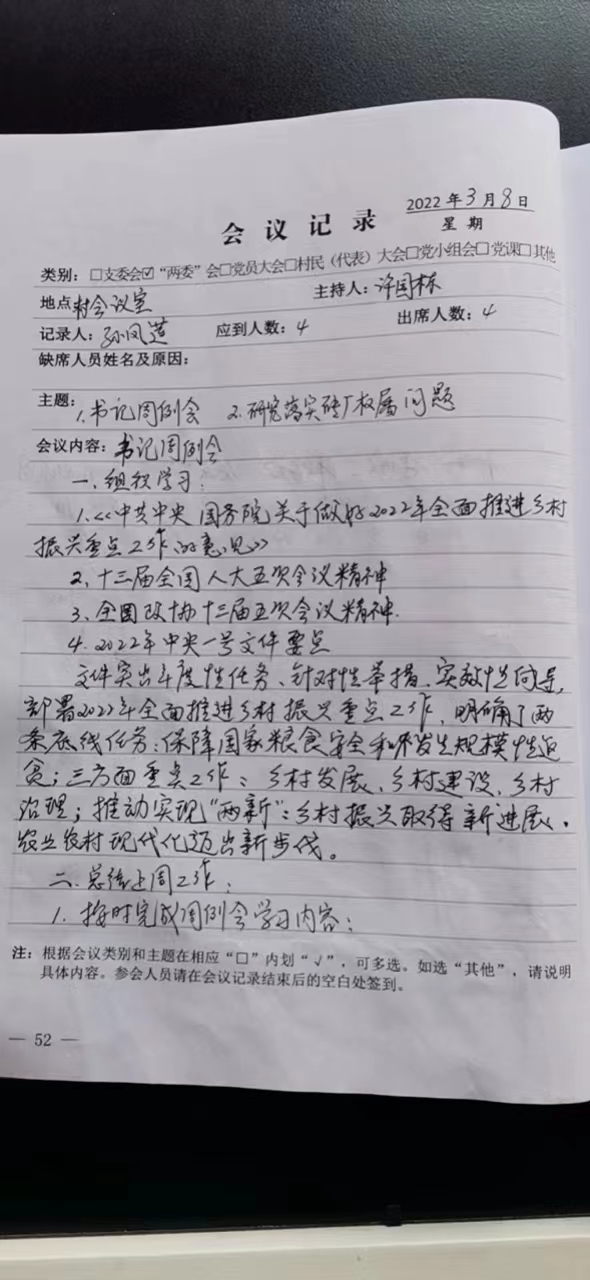 2022年3月8日
会议记录
星期
类别：□支委会☑“两委”会□党员大会□村民（代表）大会□党小组会□党课□其他
地点 村会议室 主持人：许国栋
记录人：孙凤莲 应到人数：4 出席人数：4
缺席人员姓名及原因：
主题：1.书记周例会 2.研究落实砖厂权属问题
会议内容：书记周例会
一.组织学习：
1.《中共中央 国务院关于做好2022年全面推进乡村
振兴重点工作的意见》
2、十三届全国人大五次会议精神
3、全国政协十三届五次会议精神.
4.2022年中央一号文件要点
文件突出年度性任务、针对性举措、实效性向导，
部署2022年全面推进乡村振兴重点工作，明确了两
条底线任务：保障国家粮食安全和不发生规模性返
贫；三方面重点工作：乡村发展、乡村建设、乡村
治理；推动实现“两新”：乡村振兴取得新进展、
农业农村现代化迈出新步伐。
二.总结上周工作：
1.按时完成周例会学习内容；
注：根据会议类别和主题在相应“□”内划“√”，可多选。如选“其他”，请说明
具体内容。参会人员请在会议记录结束后的空白处签到。
— 52 —